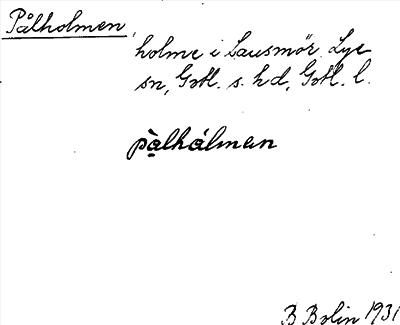 Pålholmen,
holme i Lausmör Lye
sn, Gotl. s. hd, Gotl. l.
pàlhálmen
B Bolin 1931